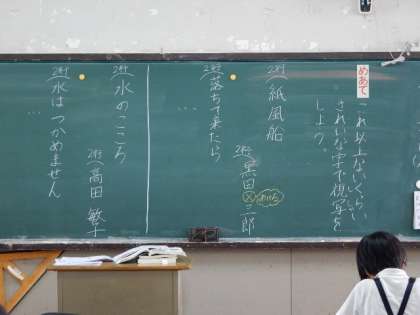 めあて
これ以上ないくらい
きれいな字で視写を
しよう。
2行 紙風船
2行 黒田 三郎
2行 落ちて来たら
…
2行 水のこころ
2行 高田 敏子
2行 水は つかめません
…